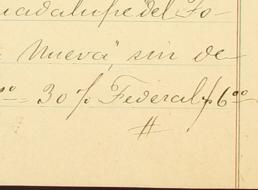 uadalupe del Fo-
Nueva", sin de
00 - 30% Federal $6.00
#